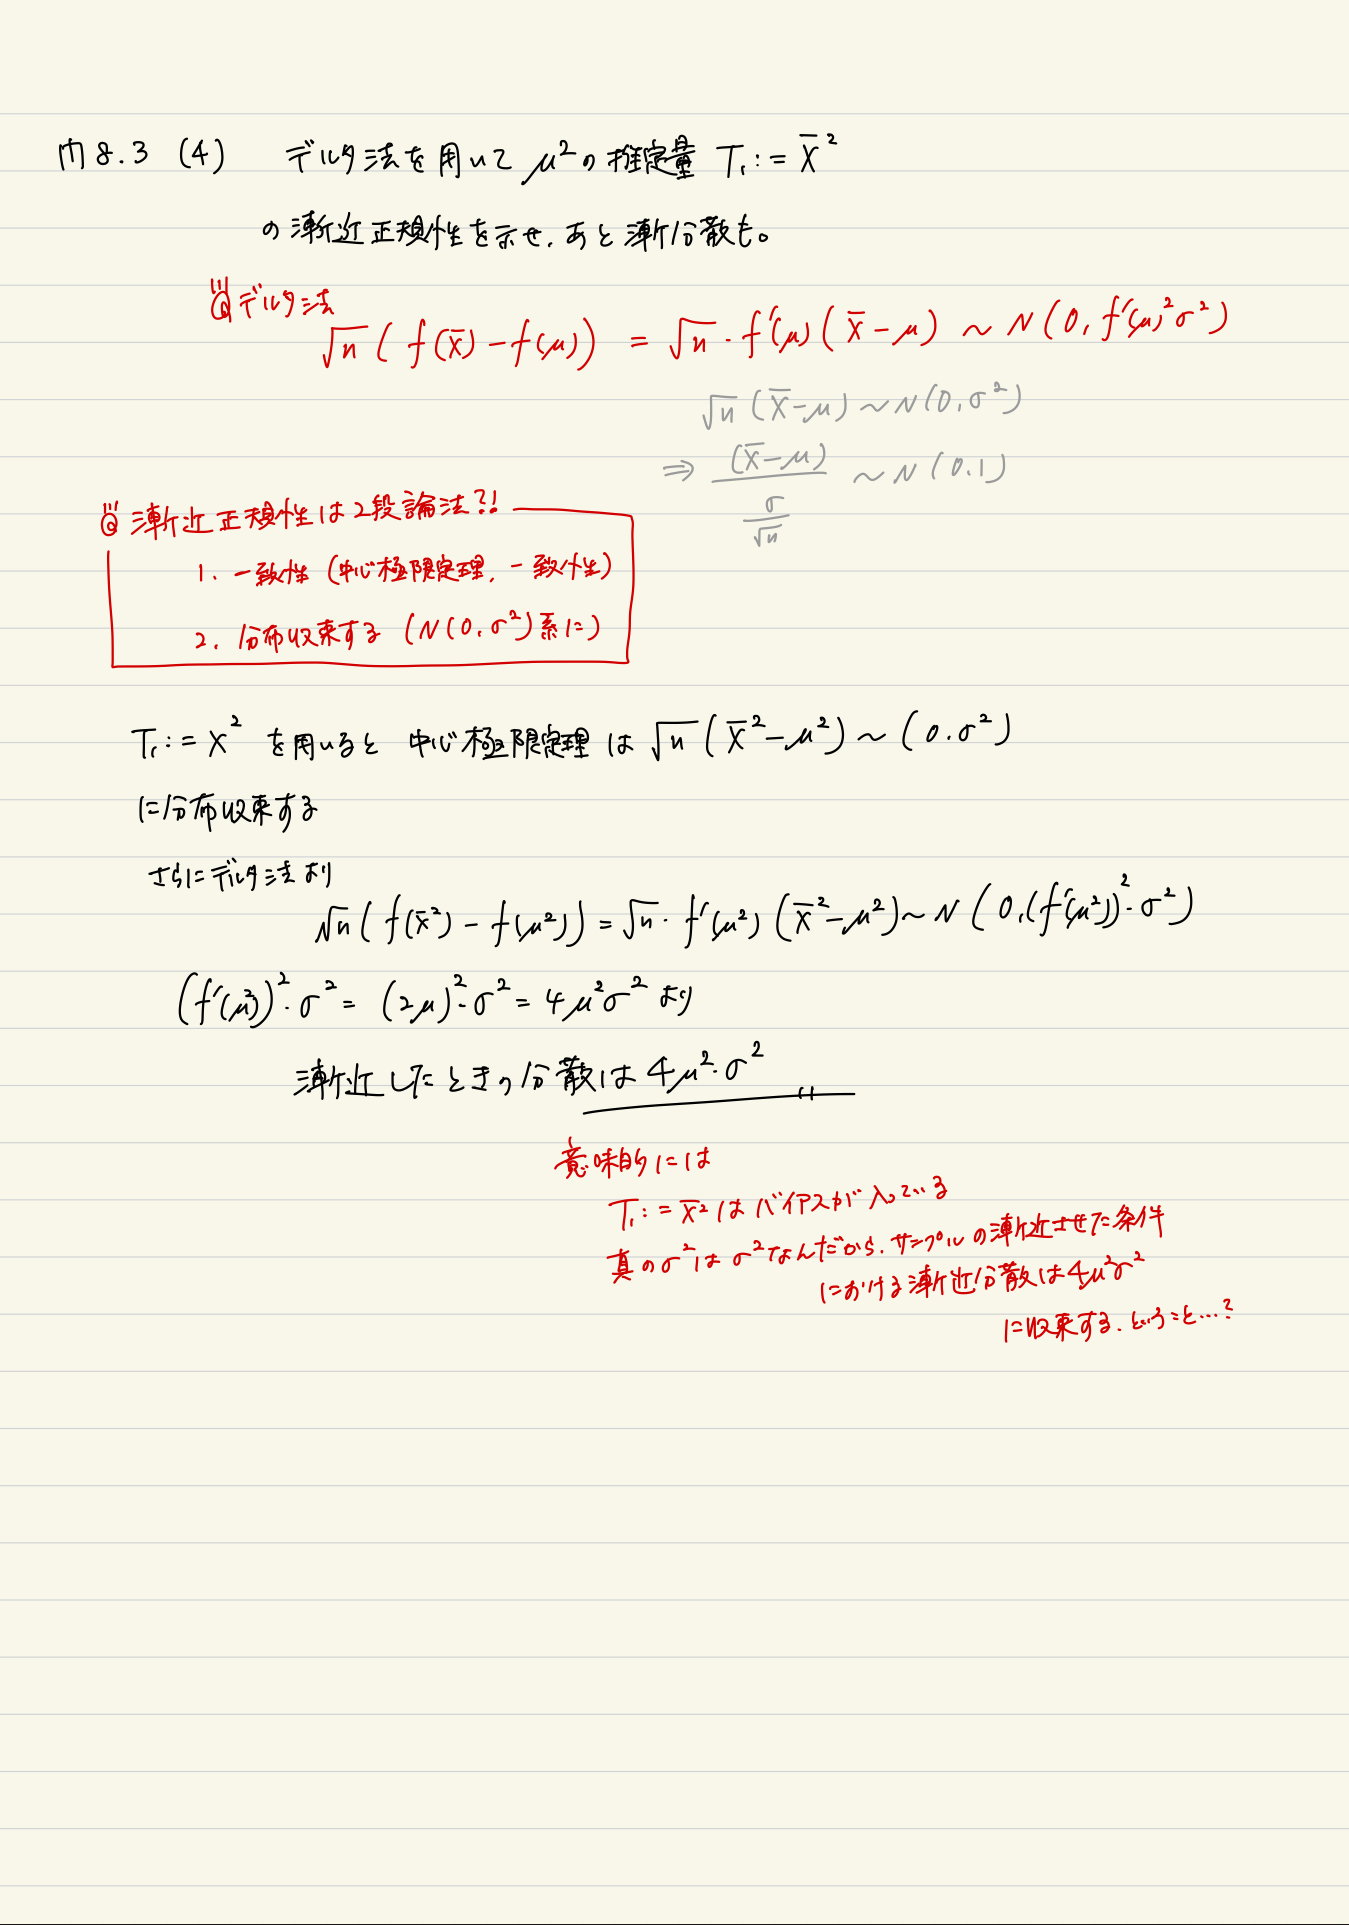 問8.3 (4) デルタ法を用いて μ²の推定量 T₁ := X̄²
の漸近正規性を示せ. あと漸近分散も。
デルタ法
√n ( f(X̄) − f(μ) ) = √n · f′(μ) ( X̄ − μ ) ~ N ( 0, f′(μ)² σ² )
√n ( X̄ − μ ) ~ N ( 0, σ² )
⇒ (X̄ − μ) / (σ/√n) ~ N ( 0, 1 )
漸近正規性は2段論法?!
1. 一致性 (中心極限定理, 一致性)
2. 分布収束する (N(0, σ²)系に)
T₁ := X² を用いると 中心極限定理 は √n ( X̄² − μ² ) ~ ( 0. σ² )
に分布収束する
さらにデルタ法より
√n ( f(X̄²) − f(μ²) ) = √n · f′(μ²) ( X̄² − μ² ) ~ N ( 0, (f′(μ²))² · σ² )
(f′(μ²))² · σ² = (2μ)² · σ² = 4μ²σ² より
漸近したときの分散は 4μ² · σ² 〃
意味的には
T₁ := X̄² はバイアスが入っている
真のσ²は σ²なんだから. サンプルの漸近させた条件
における漸近分散は4μ²σ²
に収束する. ということ…?